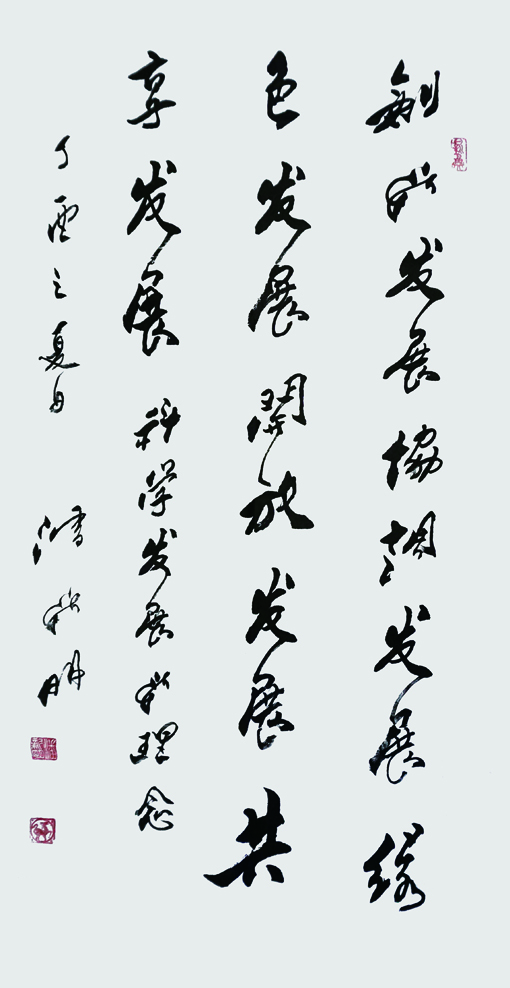 創新发展協調发展绿
色发展開放发展共
享发展 科学发展新理念
丁酉之夏月
新明